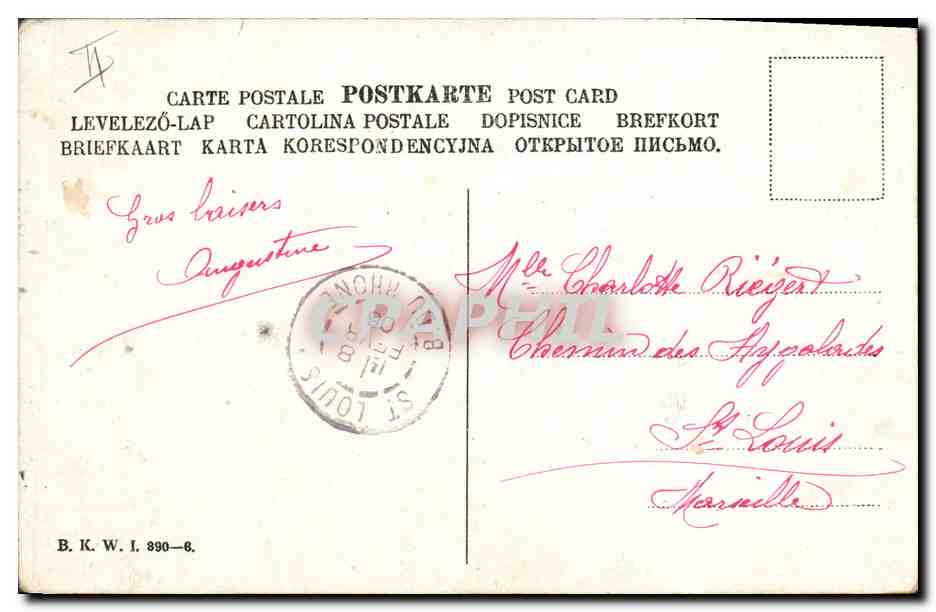 CARTE POSTALE POSTKARTE POST CARD
LEVELEZŐ-LAP CARTOLINA POSTALE DOPISNICE BREFKORT
BRIEFKAART KARTA KORESPONDENCYJNA ОТКРЫТОЕ ПИСЬМО.
Gros baisers
Augustine
Mlle Charlotte Riégert
Chemin des Aygalades
St Louis
Marseille
ST LOUIS
B DU RHONE
8
FEVR
06
CPAPHIL
B. K. W. I. 890—6.